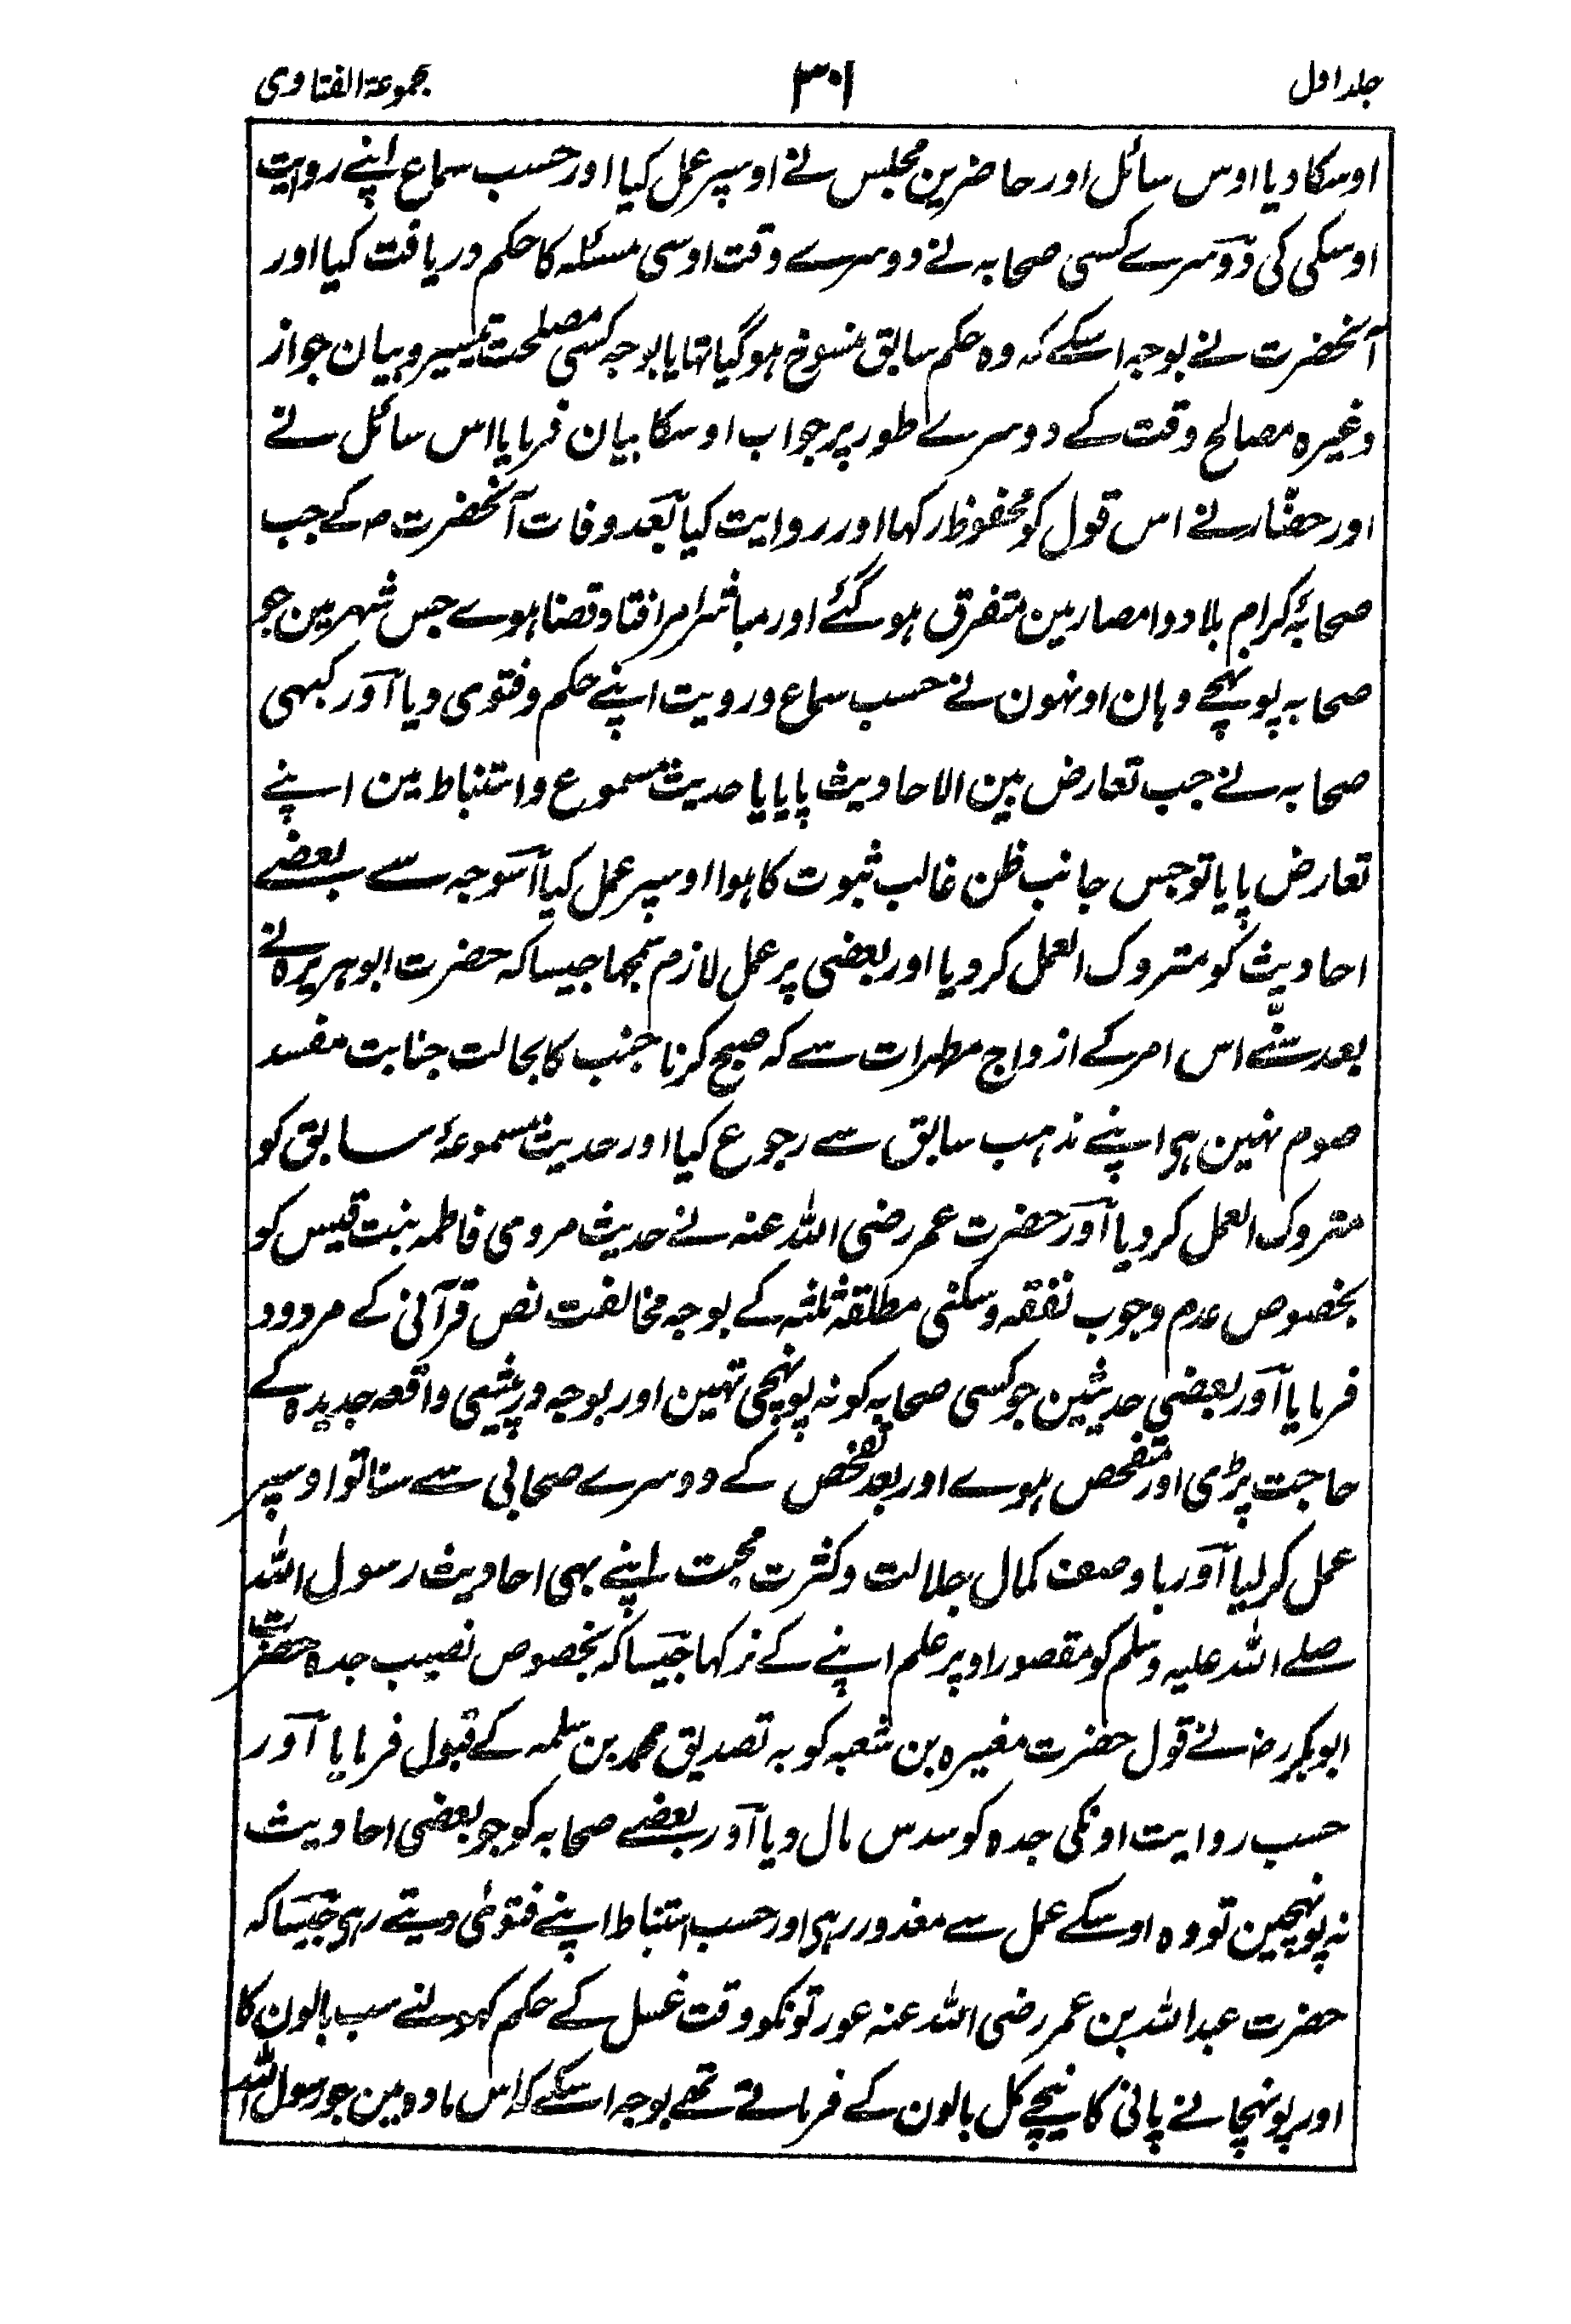 جلد اول ۳۰۱ مجموعۃ الفتاوی
اوسکا دیا اوس سائل اور حاضرین مجلس نے اوسپر عمل کیا اور حسب سماع اپنے روایت
اوسکی کی دوسرے کسی صحابہ نے دوسرے وقت اوسی مسئلہ کا حکم دریافت کیا اور
آنحضرت نے بوجہ اسکے کہ وہ حکم سابق منسوخ ہوگیا تہا یا بوجہ کسی مصلحت تیسیر و بیان جواز
وغیرہ مصالح وقت کے دوسرے طور پر جواب اوسکا بیان فرمایا اس سائل نے
اور حضّار نے اس قول کو محفوظ رکہا اور روایت کیا بعد وفات آنحضرت ؐ کے جب
صحابۂ کرام بلاد و امصار مین متفرق ہوگئے اور مباشر امر افتا و قضا ہوے جس شہر مین جو
صحابہ پہونچے وہان اونہون نے حسب سماع و رویت اپنے حکم و فتوی دیا اور کبہی
صحابہ نے جب تعارض بین الاحادیث پایا یا حدیث مسموع و استنباط مین اپنے
تعارض پایا تو جس جانب ظن غالب ثبوت کا ہوا اوسپر عمل کیا اسوجہ سے بعضے
احادیث کو متروک العمل کردیا اور بعضی پر عمل لازم سمجہا جیسا کہ حضرت ابوہریرہ نے
بعد سننے اس امر کے ازواج مطہرات سے کہ صبح کرنا جنب کا بحالت جنابت مفسد
صوم نہین ہی اپنے مذہب سابق سے رجوع کیا اور حدیث مسموعۂ سابق کو
متروک العمل کردیا اور حضرت عمر رضی اللہ عنہ نے حدیث مروی فاطمہ بنت قیس کو
بخصوص عدم وجوب نفقہ و سکنی مطلقہ ثلثہ کے بوجہ مخالفت نص قرآنی کے مردود
فرمایا اور بعضی حدیثین جو کسی صحابہ کو نہ پونہچی تہین اور بوجہ درپیشی واقعہ جدیدہ کے
حاجت پڑی اور متفحص ہوے اور بعد تفحص کے دوسرے صحابی سے سنا تو اوسپر
عمل کرلیا اور باوصف کمال جلالت و کثرت محبت اپنے بہی احادیث رسول اللہ
صلے اللہ علیہ وسلم کو مقصور اوپر علم اپنے کے نرکہا جیسا کہ بخصوص نصیب جدہ حضرت
ابوبکر رضہ نے قول حضرت مغیرہ بن شعبہ کو بہ تصدیق محمد بن سلمہ کے قبول فرمایا اور
حسب روایت اونکی جدہ کو سدس مال دیا اور بعضے صحابہ کو جو بعضی احادیث
نہ پونہچین تو وہ اوسکے عمل سے معذور رہی اور حسب استنباط اپنے فتوٰی دیتے رہی جیسا کہ
حضرت عبداللہ بن عمر رضی اللہ عنہ عورتونکو وقت غسل کے حکم کہولنے سب بالون کا
اور پونہچانے پانی کا نیچے کل بالون کے فرماتے تہے بوجہ اسکے کہ اس مادہ مین جو رسول اللہ